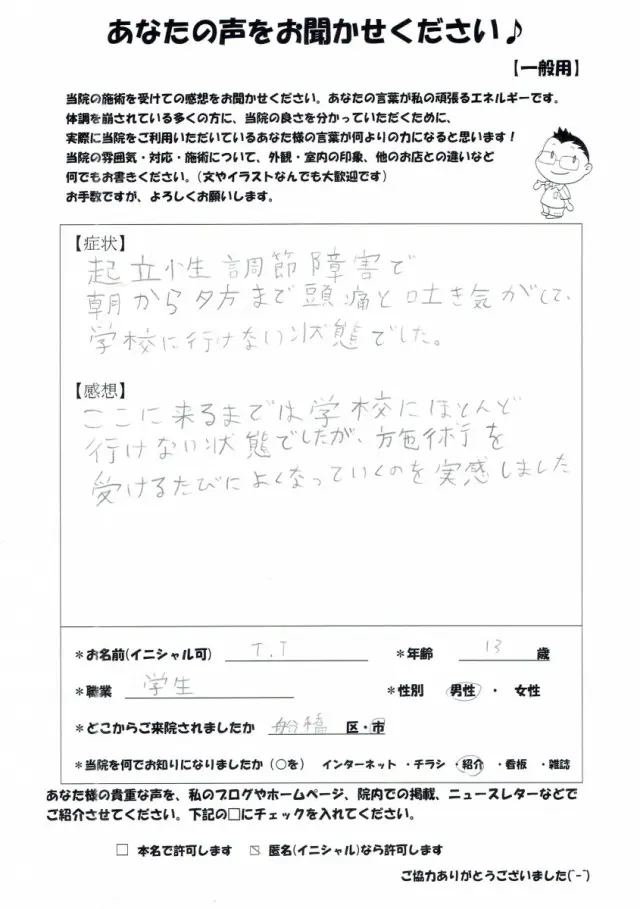 あなたの声をお聞かせください♪
【一般用】
当院の施術を受けての感想をお聞かせください。あなたの言葉が私の頑張るエネルギーです。
体調を崩されている多くの方に、当院の良さを分かっていただくために、
実際に当院をご利用いただいているあなた様の言葉が何よりの力になると思います！
当院の雰囲気・対応・施術について、外観・室内の印象、他のお店との違いなど
何でもお書きください。(文やイラストなんでも大歓迎です)
お手数ですが、よろしくお願いします。
【症状】
起立性調節障害で
朝から夕方まで頭痛と吐き気がして、
学校に行けない状態でした。
【感想】
ここに来るまでは学校にほとんど
行けない状態でしたが、施術を
受けるたびによくなっていくのを実感しました
＊お名前(イニシャル可) T.T ＊年齢 13 歳
＊職業 学生 ＊性別 男性 ・ 女性
＊どこからご来院されましたか 船橋 区・市
＊当院を何でお知りになりましたか（○を） インターネット ・チラシ ・紹介 ・看板 ・雑誌
あなた様の貴重な声を、私のブログやホームページ、院内での掲載、ニュースレターなどで
ご紹介させてください。下記の□にチェックを入れてください。
□ 本名で許可します ☑ 匿名(イニシャル)なら許可します
ご協力ありがとうございました(^-^)